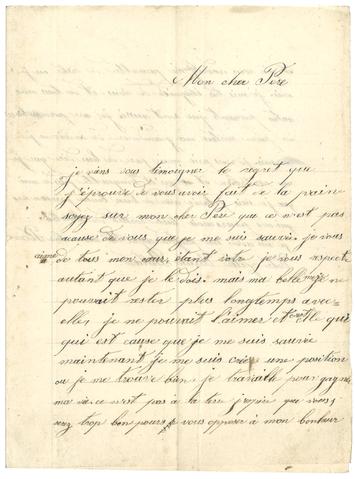 Mon cher Père
je viens vous temoigner le regret que
j'éprouve de vous avoir fait de la paine
soyez sur mon cher Père que ce n'est pas
acause de vous que je me suis sauvé. je vous
aime de tous mon cœur, etant votre je vous respecte
autant que je le dois. mais ma belle mere ne
pouvait rester plus longtemps avec
elle, je ne pouvait l'aimer et elle qui
qui est cause que je me suis sauvée
maintenant je me suis créée une position
ou je me trouve bien, je travaille pour gagner
ma vie ce n'est pas à la terre j'espère que vous
serez trop bon pour vous opposer à mon bonheur